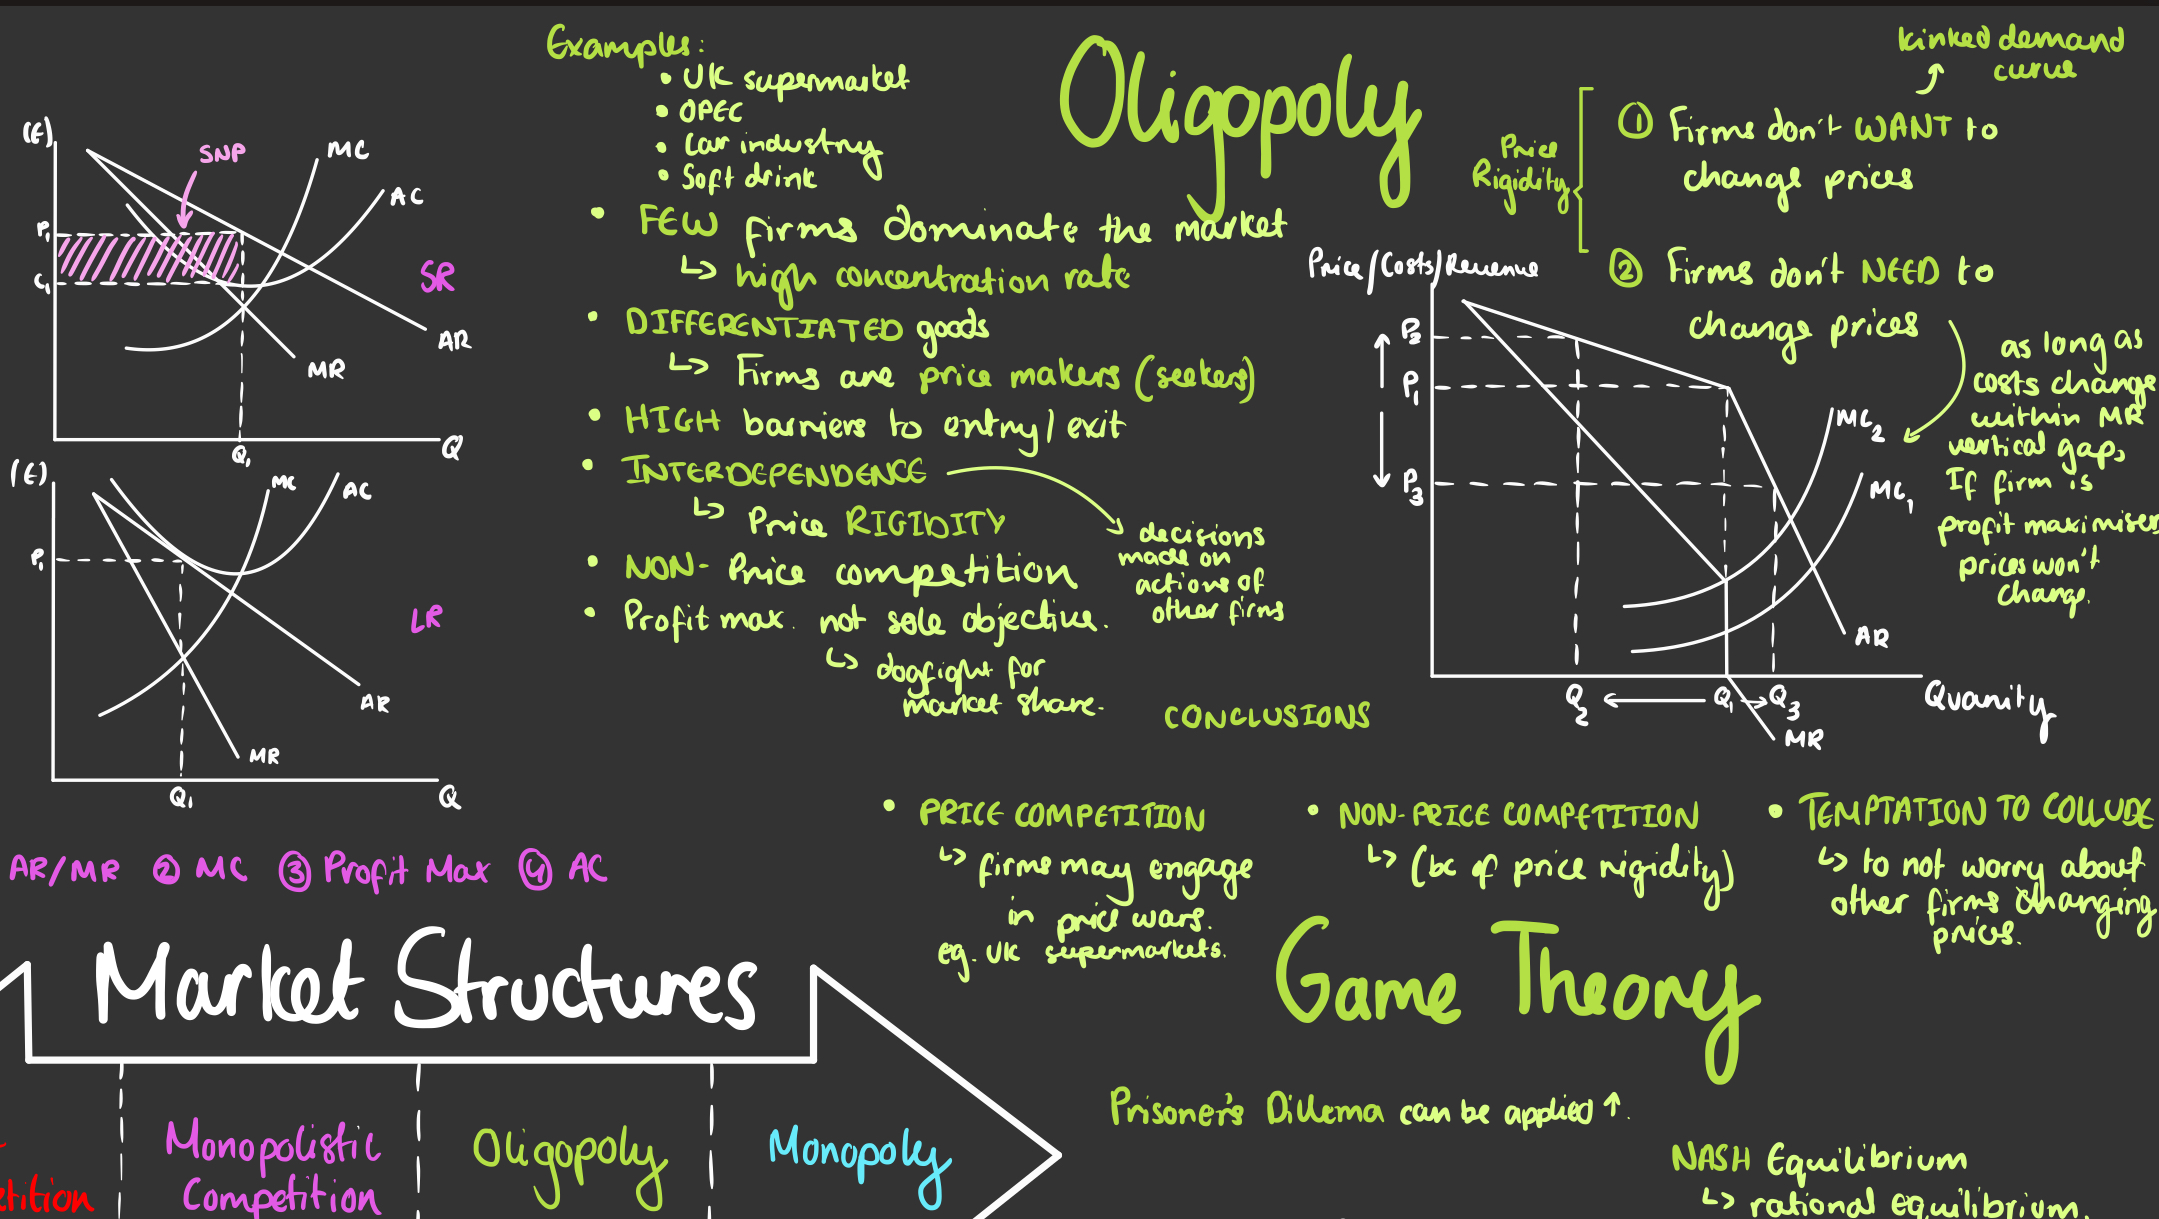 (£)
SNP
MC
AC
P₁
C₁
SR
AR
MR
Q₁
Q
(£)
MC
AC
P₁
LR
AR
MR
Q₁
Q
AR/MR ② MC ③ Profit Max ④ AC
Examples:
• UK supermarket
• OPEC
• Car industry
• Soft drink
Oligopoly
• FEW firms dominate the market
↳ high concentration rate
• DIFFERENTIATED goods
↳ Firms are price makers (seekers)
• HIGH barriers to entry/exit
• INTERDEPENDENCE
↳ Price RIGIDITY
decisions
made on
actions of
other firms
• NON- Price competition
• Profit max. not sole objective.
↳ dogfight for
market share.
kinked demand
curve
Price
Rigidity
① Firms don't WANT to
change prices
② Firms don't NEED to
change prices
as long as
costs change
within MR
vertical gap,
If firm is
profit maximiser
prices won't
change.
Price/Costs/Revenue
P₂
P₁
P₃
MC₂
MC₁
AR
Q₂ Q₁ Q₃
Quanity
MR
CONCLUSIONS
• PRICE COMPETITION
↳ firms may engage
in price wars.
eg. UK supermarkets.
• NON-PRICE COMPETITION
↳ (bc of price rigidity)
• TEMPTATION TO COLLUDE
↳ to not worry about
other firms changing
prices.
Market Structures
etition
Monopolistic
Competition
Oligopoly
Monopoly
Game Theory
Prisoner's Dillema can be applied ↑.
NASH Equilibrium
↳ rational equilibrium.